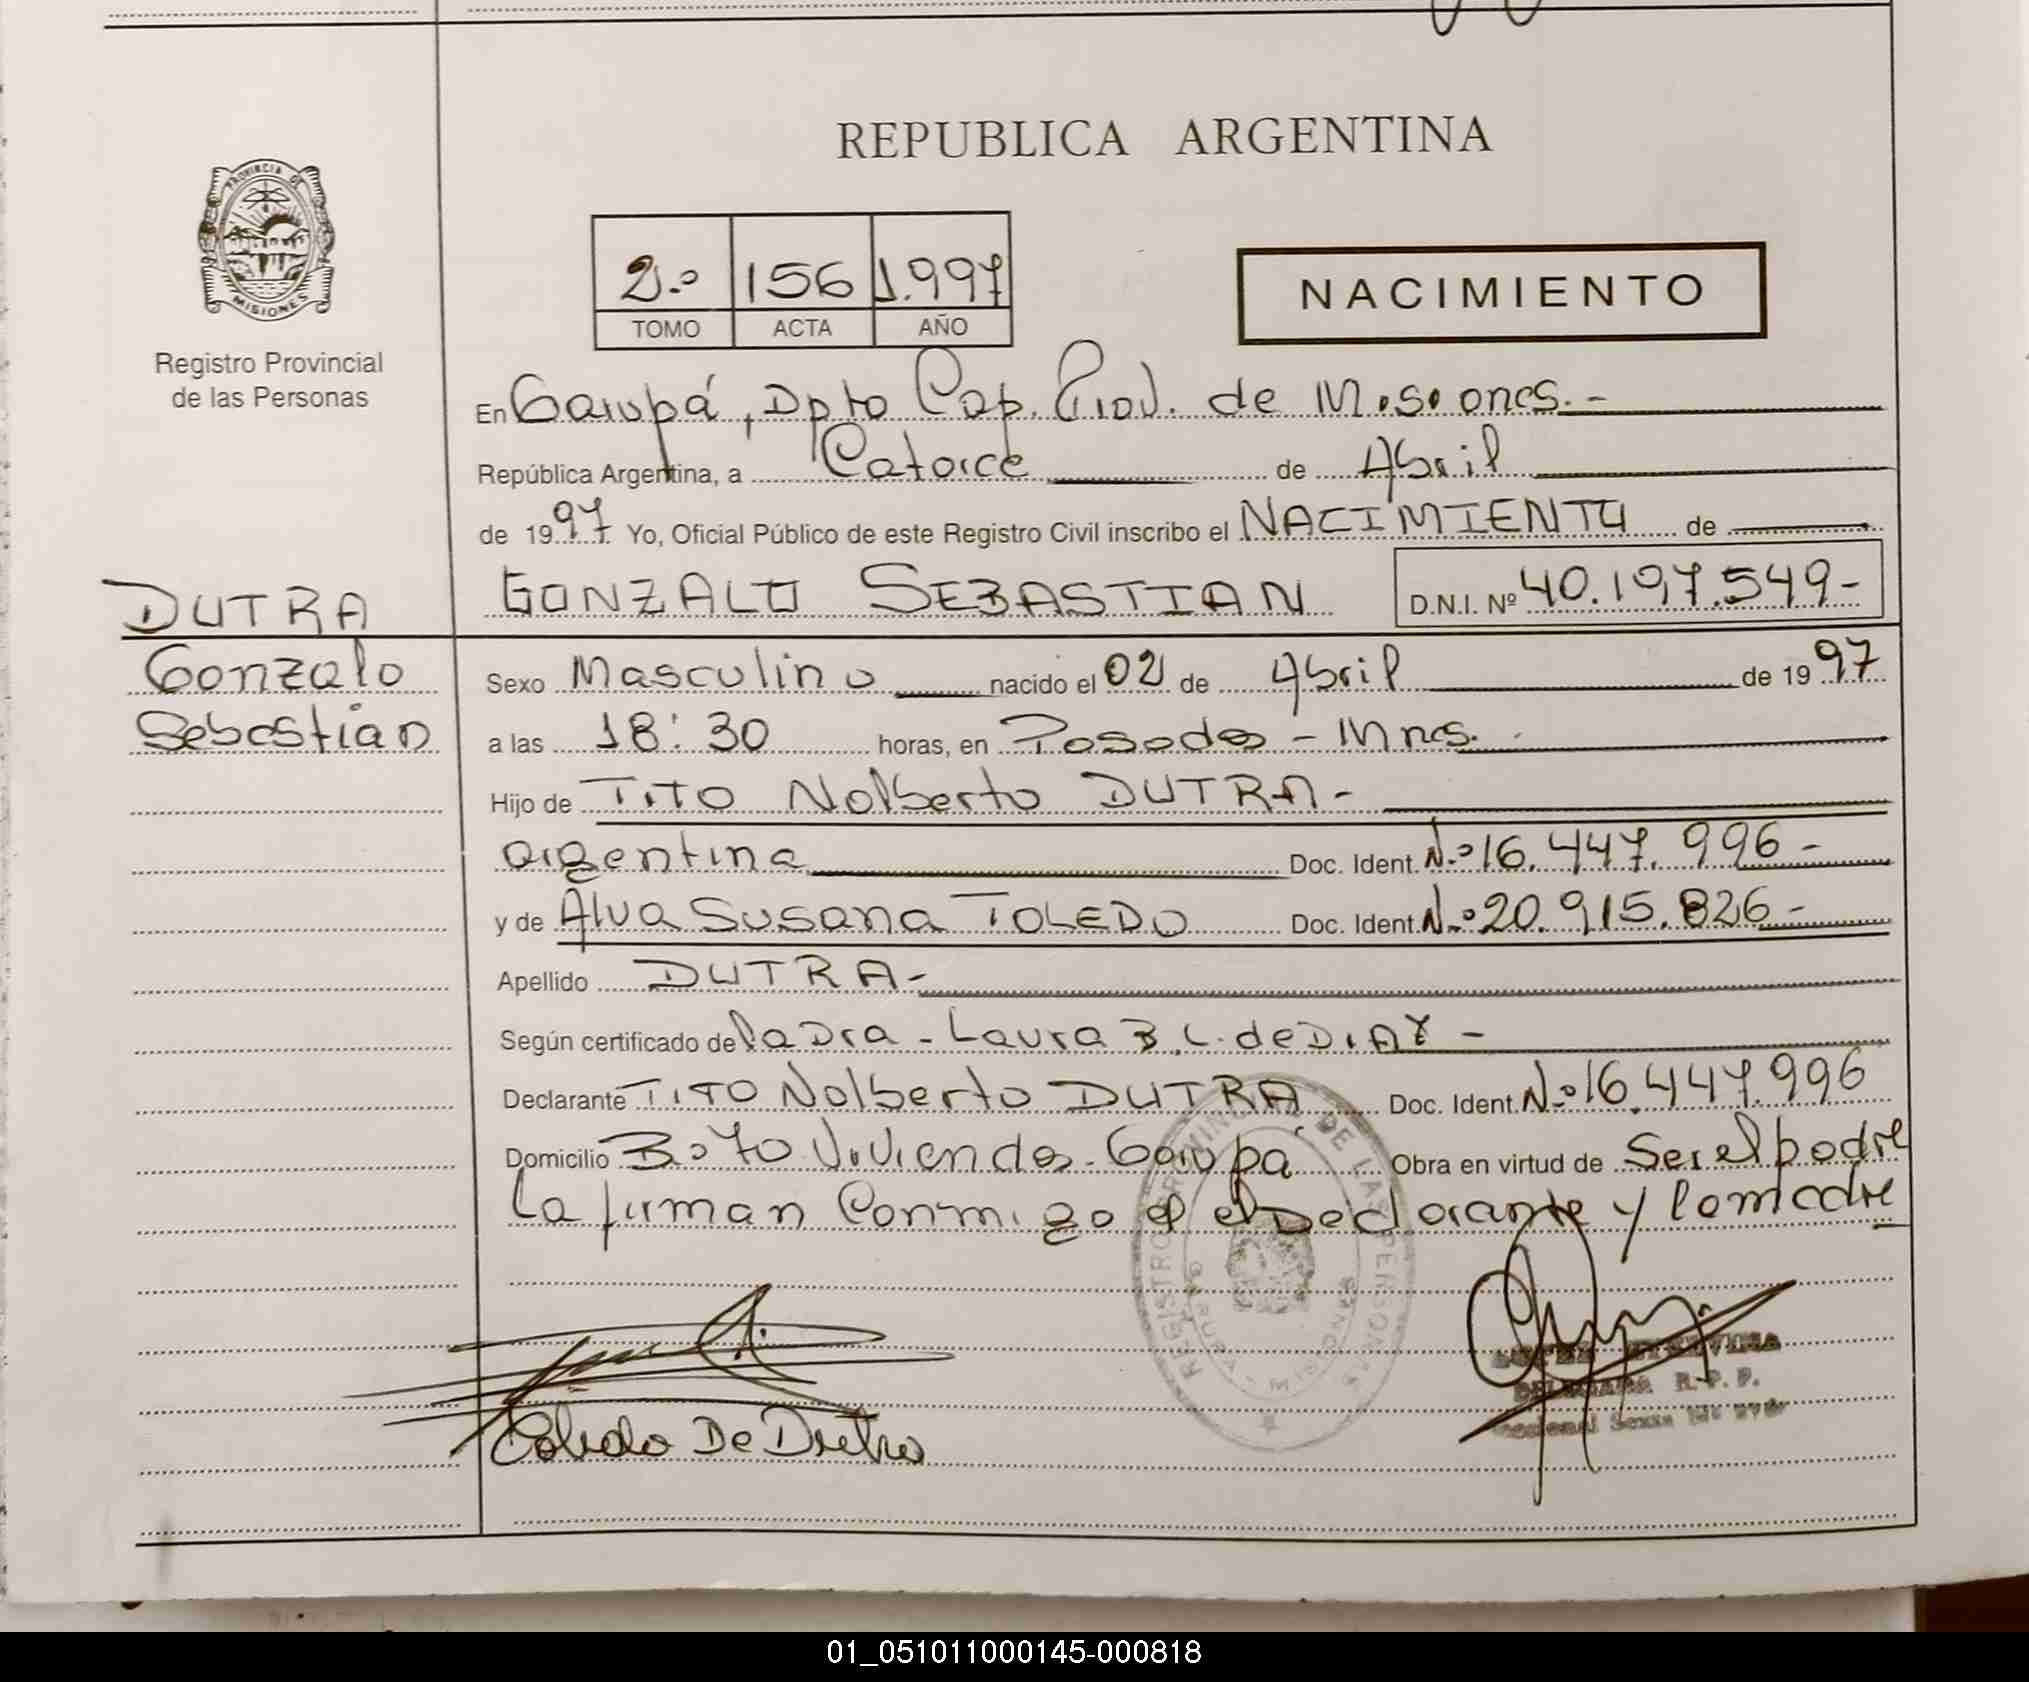 REPUBLICA ARGENTINA
PROVINCIA DE
MISIONES
Registro Provincial
de las Personas
2.º 156 1.997
TOMO ACTA AÑO
NACIMIENTO
En Garupá, Dpto Cap. Prov. de Misiones.-
República Argentina, a Catorce de Abril
de 1997 Yo, Oficial Público de este Registro Civil inscribo el NACIMIENTO de
GONZALO SEBASTIAN D.N.I. Nº 40.197.549-
DUTRA
Gonzalo
Sebastian
Sexo Masculino nacido el 02 de Abril de 1997
a las 18:30 horas, en Posadas - Mnes.
Hijo de TITO Nolberto DUTRA-
argentina Doc. Ident. N.º 16.447.996-
y de Alva Susana TOLEDO Doc. Ident. N.º 20.915.826-
Apellido DUTRA-
Según certificado de la Dra - Laura B. L. de DIAZ -
Declarante TITO Nolberto DUTRA Doc. Ident. N.º 16.447.996
Domicilio B.º 70 Viviendas - Garupá Obra en virtud de Ser el padre
La firman Conmigo el Declarante y la madre
REGISTRO PROVINCIAL DE LAS PERSONAS
GARUPA - MISIONES
de Dutra
R.P.P.
01_051011000145-000818